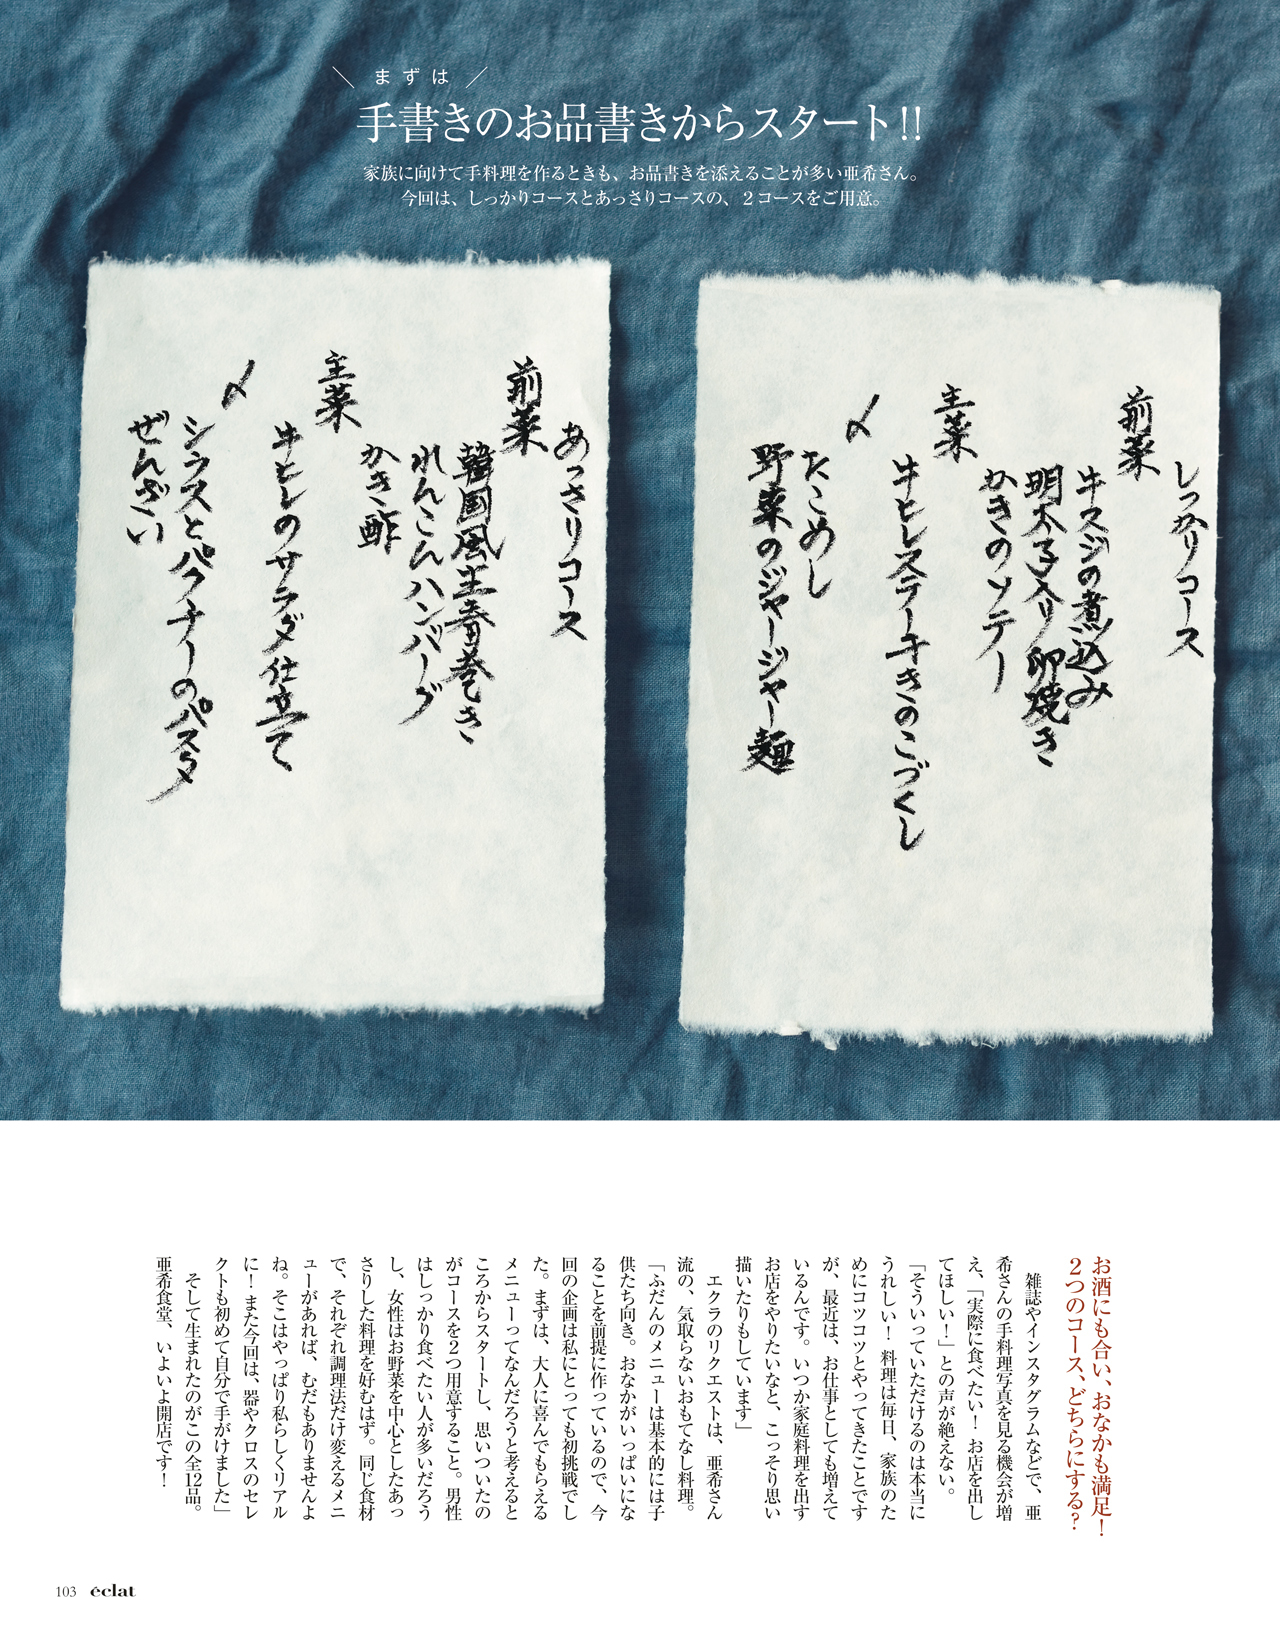 まずは
手書きのお品書きからスタート!!
家族に向けて手料理を作るときも、お品書きを添えることが多い亜希さん。
今回は、しっかりコースとあっさりコースの、２コースをご用意。
しっかりコース
前菜
牛スジの煮込み
明太子入り卵焼き
かきのソテー
主菜
牛ヒレステーキきのこづくし
〆
たこめし
野菜のジャージャー麺
あっさりコース
前菜
韓国風生春巻き
れんこんハンバーグ
かき酢
主菜
牛ヒレのサラダ仕立て
〆
シラスとパクチーのパスタ
ぜんざい
お酒にも合い、おなかも満足！
２つのコース、どちらにする？
雑誌やインスタグラムなどで、亜
希さんの手料理写真を見る機会が増
え、「実際に食べたい！お店を出し
てほしい！」との声が絶えない。
「そういっていただけるのは本当に
うれしい！料理は毎日、家族のた
めにコツコツとやってきたことです
が、最近は、お仕事としても増えて
いるんです。いつか家庭料理を出す
お店をやりたいなと、こっそり思い
描いたりもしています」
エクラのリクエストは、亜希さん
流の、気取らないおもてなし料理。
「ふだんのメニューは基本的には子
供たち向き。おなかがいっぱいにな
ることを前提に作っているので、今
回の企画は私にとっても初挑戦でし
た。まずは、大人に喜んでもらえる
メニューってなんだろうと考えると
ころからスタートし、思いついたの
がコースを２つ用意すること。男性
はしっかり食べたい人が多いだろう
し、女性はお野菜を中心としたあっ
さりした料理を好むはず。同じ食材
で、それぞれ調理法だけ変えるメニ
ューがあれば、むだもありませんよ
ね。そこはやっぱり私らしくリアル
に！また今回は、器やクロスのセレ
クトも初めて自分で手がけました」
そして生まれたのがこの全12品。
亜希食堂、いよいよ開店です！
103 éclat